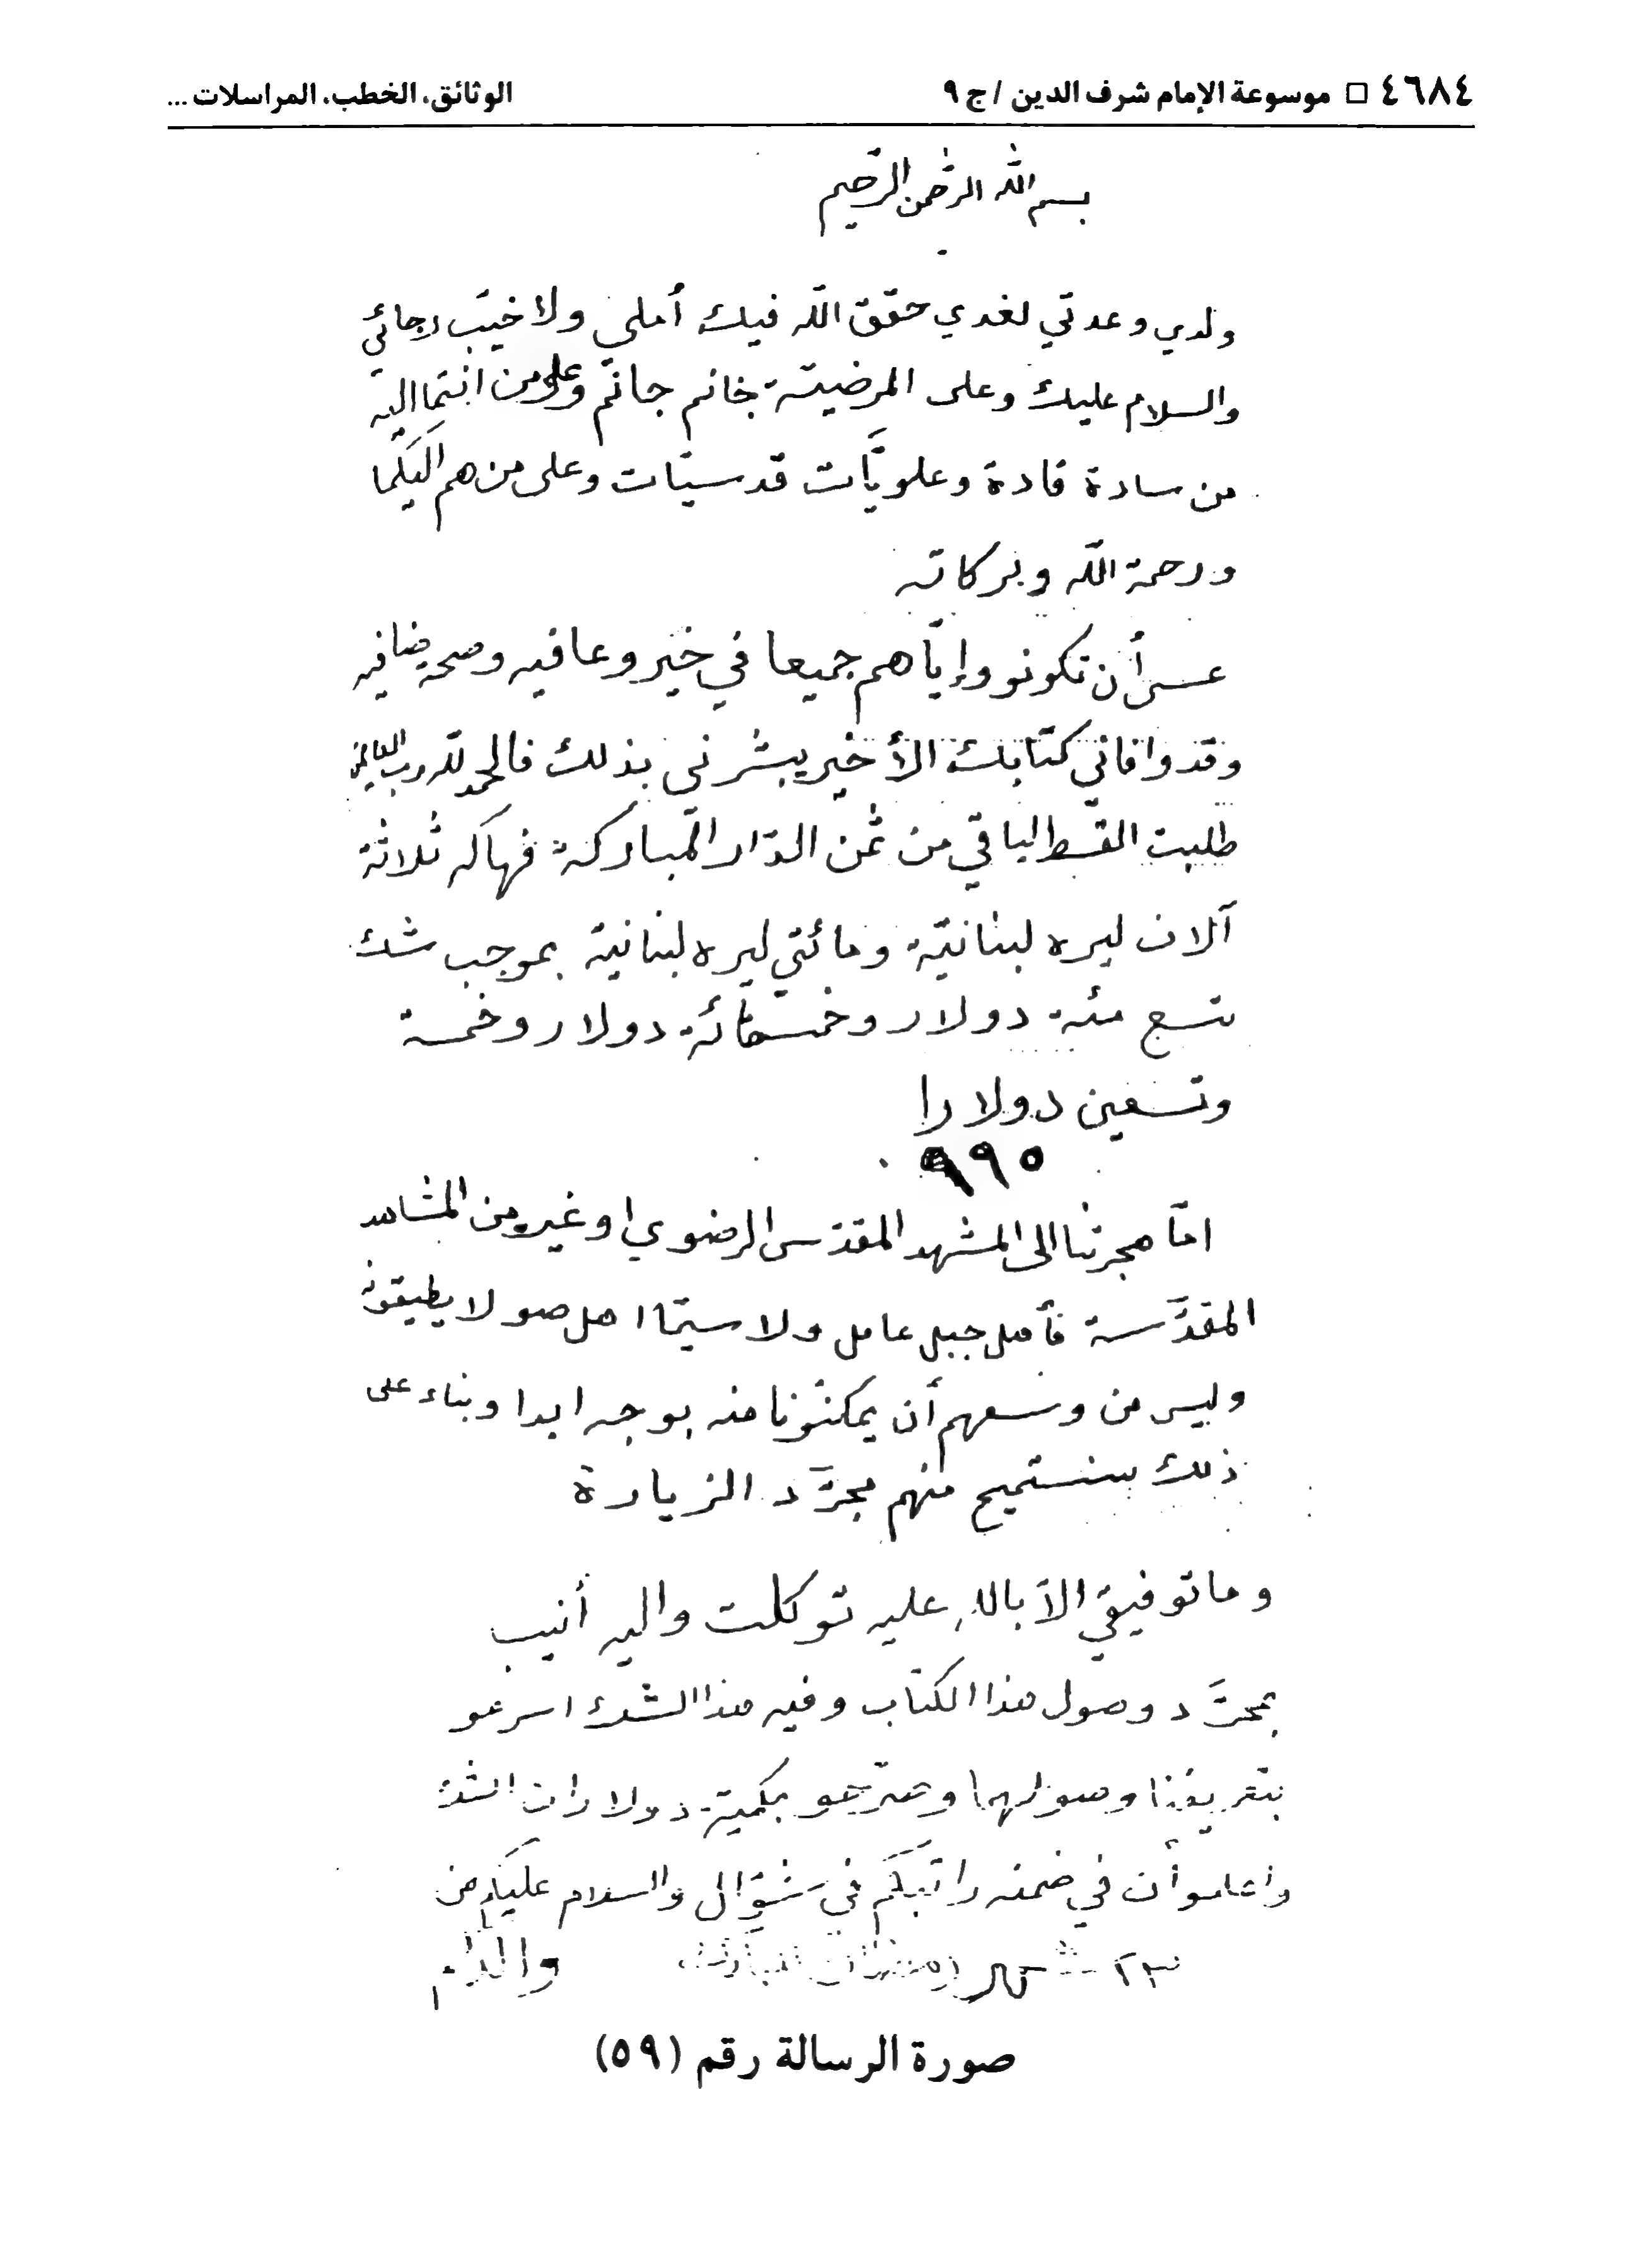 ٤٦٨٤ □ موسوعة الإمام شرف الدين / ج ٩
الوثائق، الخطب، المراسلات ...
بسم الله الرحمن الرحيم
ولدي وعدتي لغدي حقق الله فيك أملي ولا خيّب رجائي
والسلام عليك وعلى المرضيّة خانم جانم وعلى من انتما اليه
من سادة قادة وعلويَّات قدسيّات وعلى من هم اليكما
ورحمة الله وبركاته
عسى أن تكونو وإيّاهم جميعا في خير وعافيه وصحة ضافيه
وقد وافاني كتابك الأخير يبشرني بذلك فالحمد لله رب العالمين
طلبت القسط الباقي من ثمن الدّار المباركة فهاكه ثلاثة
آلاف ليره لبنانيّة ومائتي ليره لبنانية بموجب شك
تسع مئة دولار وخمسمائة دولار وخمسة
وتسعين دولارا
٩٩٥
امّا هجرتنا الى المشهد المقدّس الرضوي او غيره من المشاهد
المقدَّسة فأهل جبل عامل ولا سيّما اهل صور لا يطيقونه
وليس من وسعهم أن يمكنونا منه بوجه ابدا وبناء على
ذلك سنستميح منهم مجرَّد الزيارة
وما توفيقي الّا بالله عليه توكلت واليه أنيب
بمجرَّد وصول هذا الكتاب وفيه هذا الشك اسرعو
بتعريفنا وصولهما وصرّحو بكميّة دولارات الشك
واعلموا أن في ضمنه راتبكم في شوّال والسلام عليكم من
٢٣ شهر رمضان المبارك والدكم
صورة الرسالة رقم (٥٩)